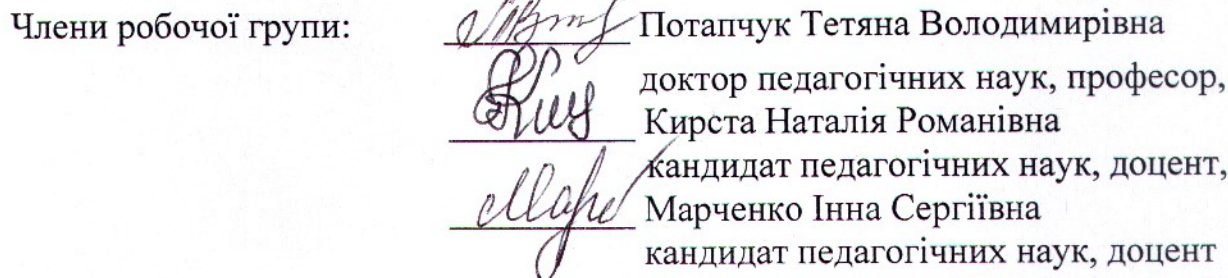 Члени робочої групи: Потапчук Тетяна Володимирівна
доктор педагогічних наук, професор,
Кирста Наталія Романівна
кандидат педагогічних наук, доцент,
Марченко Інна Сергіївна
кандидат педагогічних наук, доцент